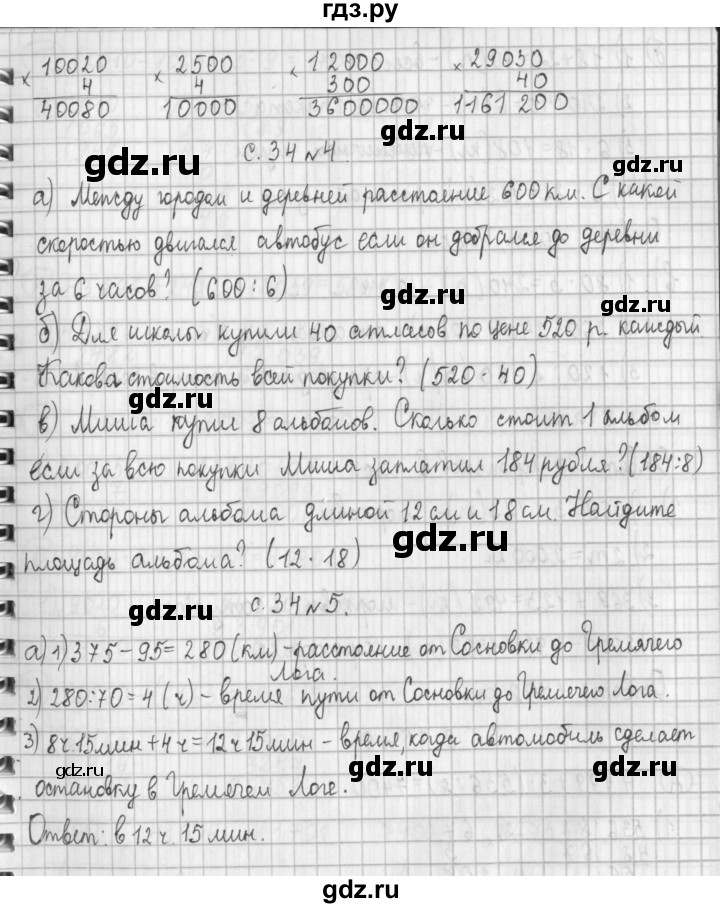 гдз.ру
× 10020 × 2500 × 12000 × 29030
4 4 300 40
40080 10000 3600000 1161200
gdz.ru
gdz.ru
с. 34 №4.
gdz.ru
gdz.ru
а) Между городом и деревней расстояние 600 км. С какой
скоростью двигался автобус если он добрался до деревни
за 6 часов? (600:6)
gdz.ru
gdz.ru
б) Для школы купили 40 атласов по цене 520 р. каждый.
Какова стоимость всей покупки? (520·40)
gdz.ru
gdz.ru
в) Миша купил 8 альбомов. Сколько стоит 1 альбом
если за всю покупки Миша заплатил 184 рубля? (184:8)
г) Стороны альбома длиной 12 см и 18 см. Найдите
gdz.ru
площадь альбома? (12·18)
gdz.ru
с. 34 №5.
gdz.ru
а) 1) 375-95=280 (км)-расстояние от Сосновки до Гремячего
Лога.
2) 280:70=4 (ч) - время пути от Сосновки до Гремячего Лога.
3) 8ч.15мин+4ч=12ч15мин-время, когда автомобиль сделает
gdz.ru
gdz.ru
gdz.ru
остановку в Гремячем Логе.
Ответ: в 12 ч. 15 мин.
gdz.ru